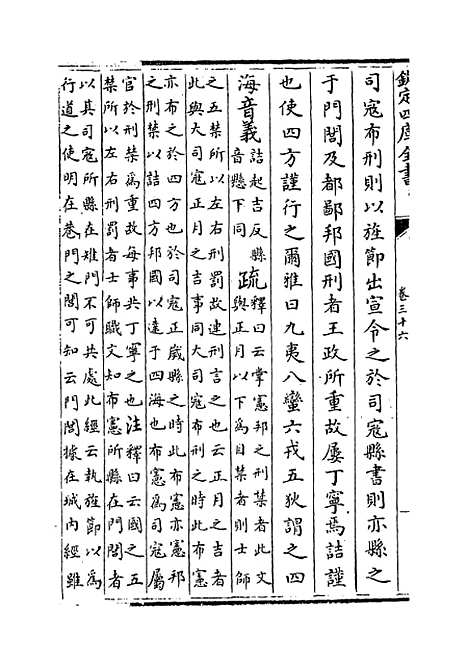 欽定四庫全書
卷三十六
司寇布刑則以旌節出宣令之於司寇縣書則亦縣之
于門閭及都鄙邦國刑者王政所重故屢丁寧焉詰謹
也使四方謹行之爾雅曰九夷八蠻六戎五狄謂之四
海音義詰起吉反縣
音懸下同
疏釋曰云掌憲邦之刑禁者此文
與正月以下爲目禁者則士師
之五禁所以左右刑罰故連刑言之也云正月之吉者
此與大司寇正月之吉事同大司寇布刑之時此布憲
亦布之於四方也於司寇正歲縣之時此布憲亦憲邦
之刑禁以詰四方邦國以達于四海也布憲爲司寇屬
官於刑禁爲重故每事共丁寧之也注釋曰云國之五
禁所以左右刑罰者士師職文知布憲所縣在門閭者
以其司寇所縣在雉門不可共處此經云執旌節以爲
行道之使明在巷門之閭可知云門閭據在城内經雖